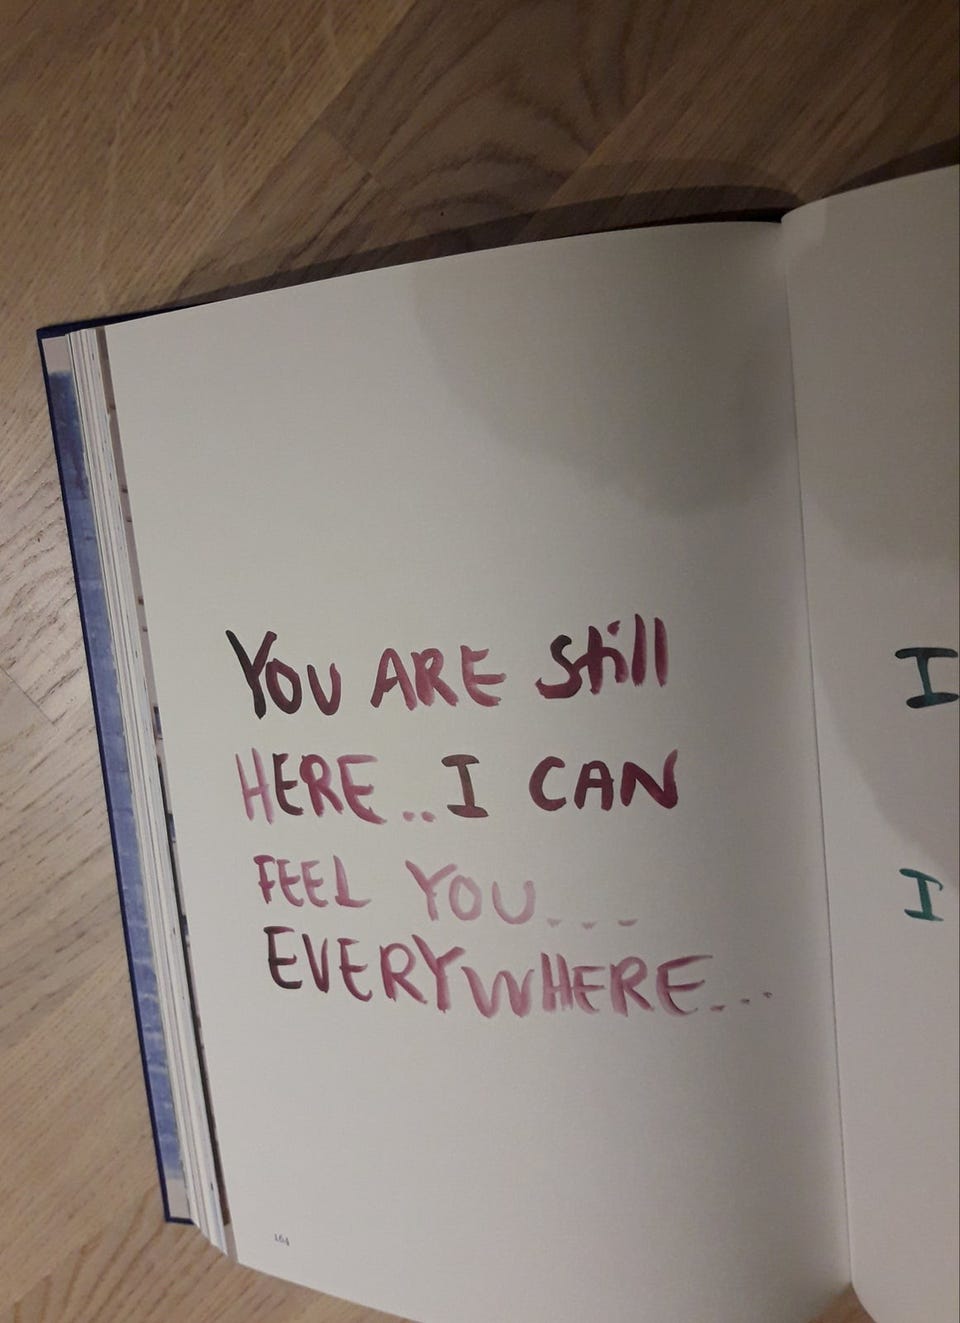 YOU ARE Still
HERE.. I CAN
FEEL YOU...
EVERYWHERE...
164
I
I